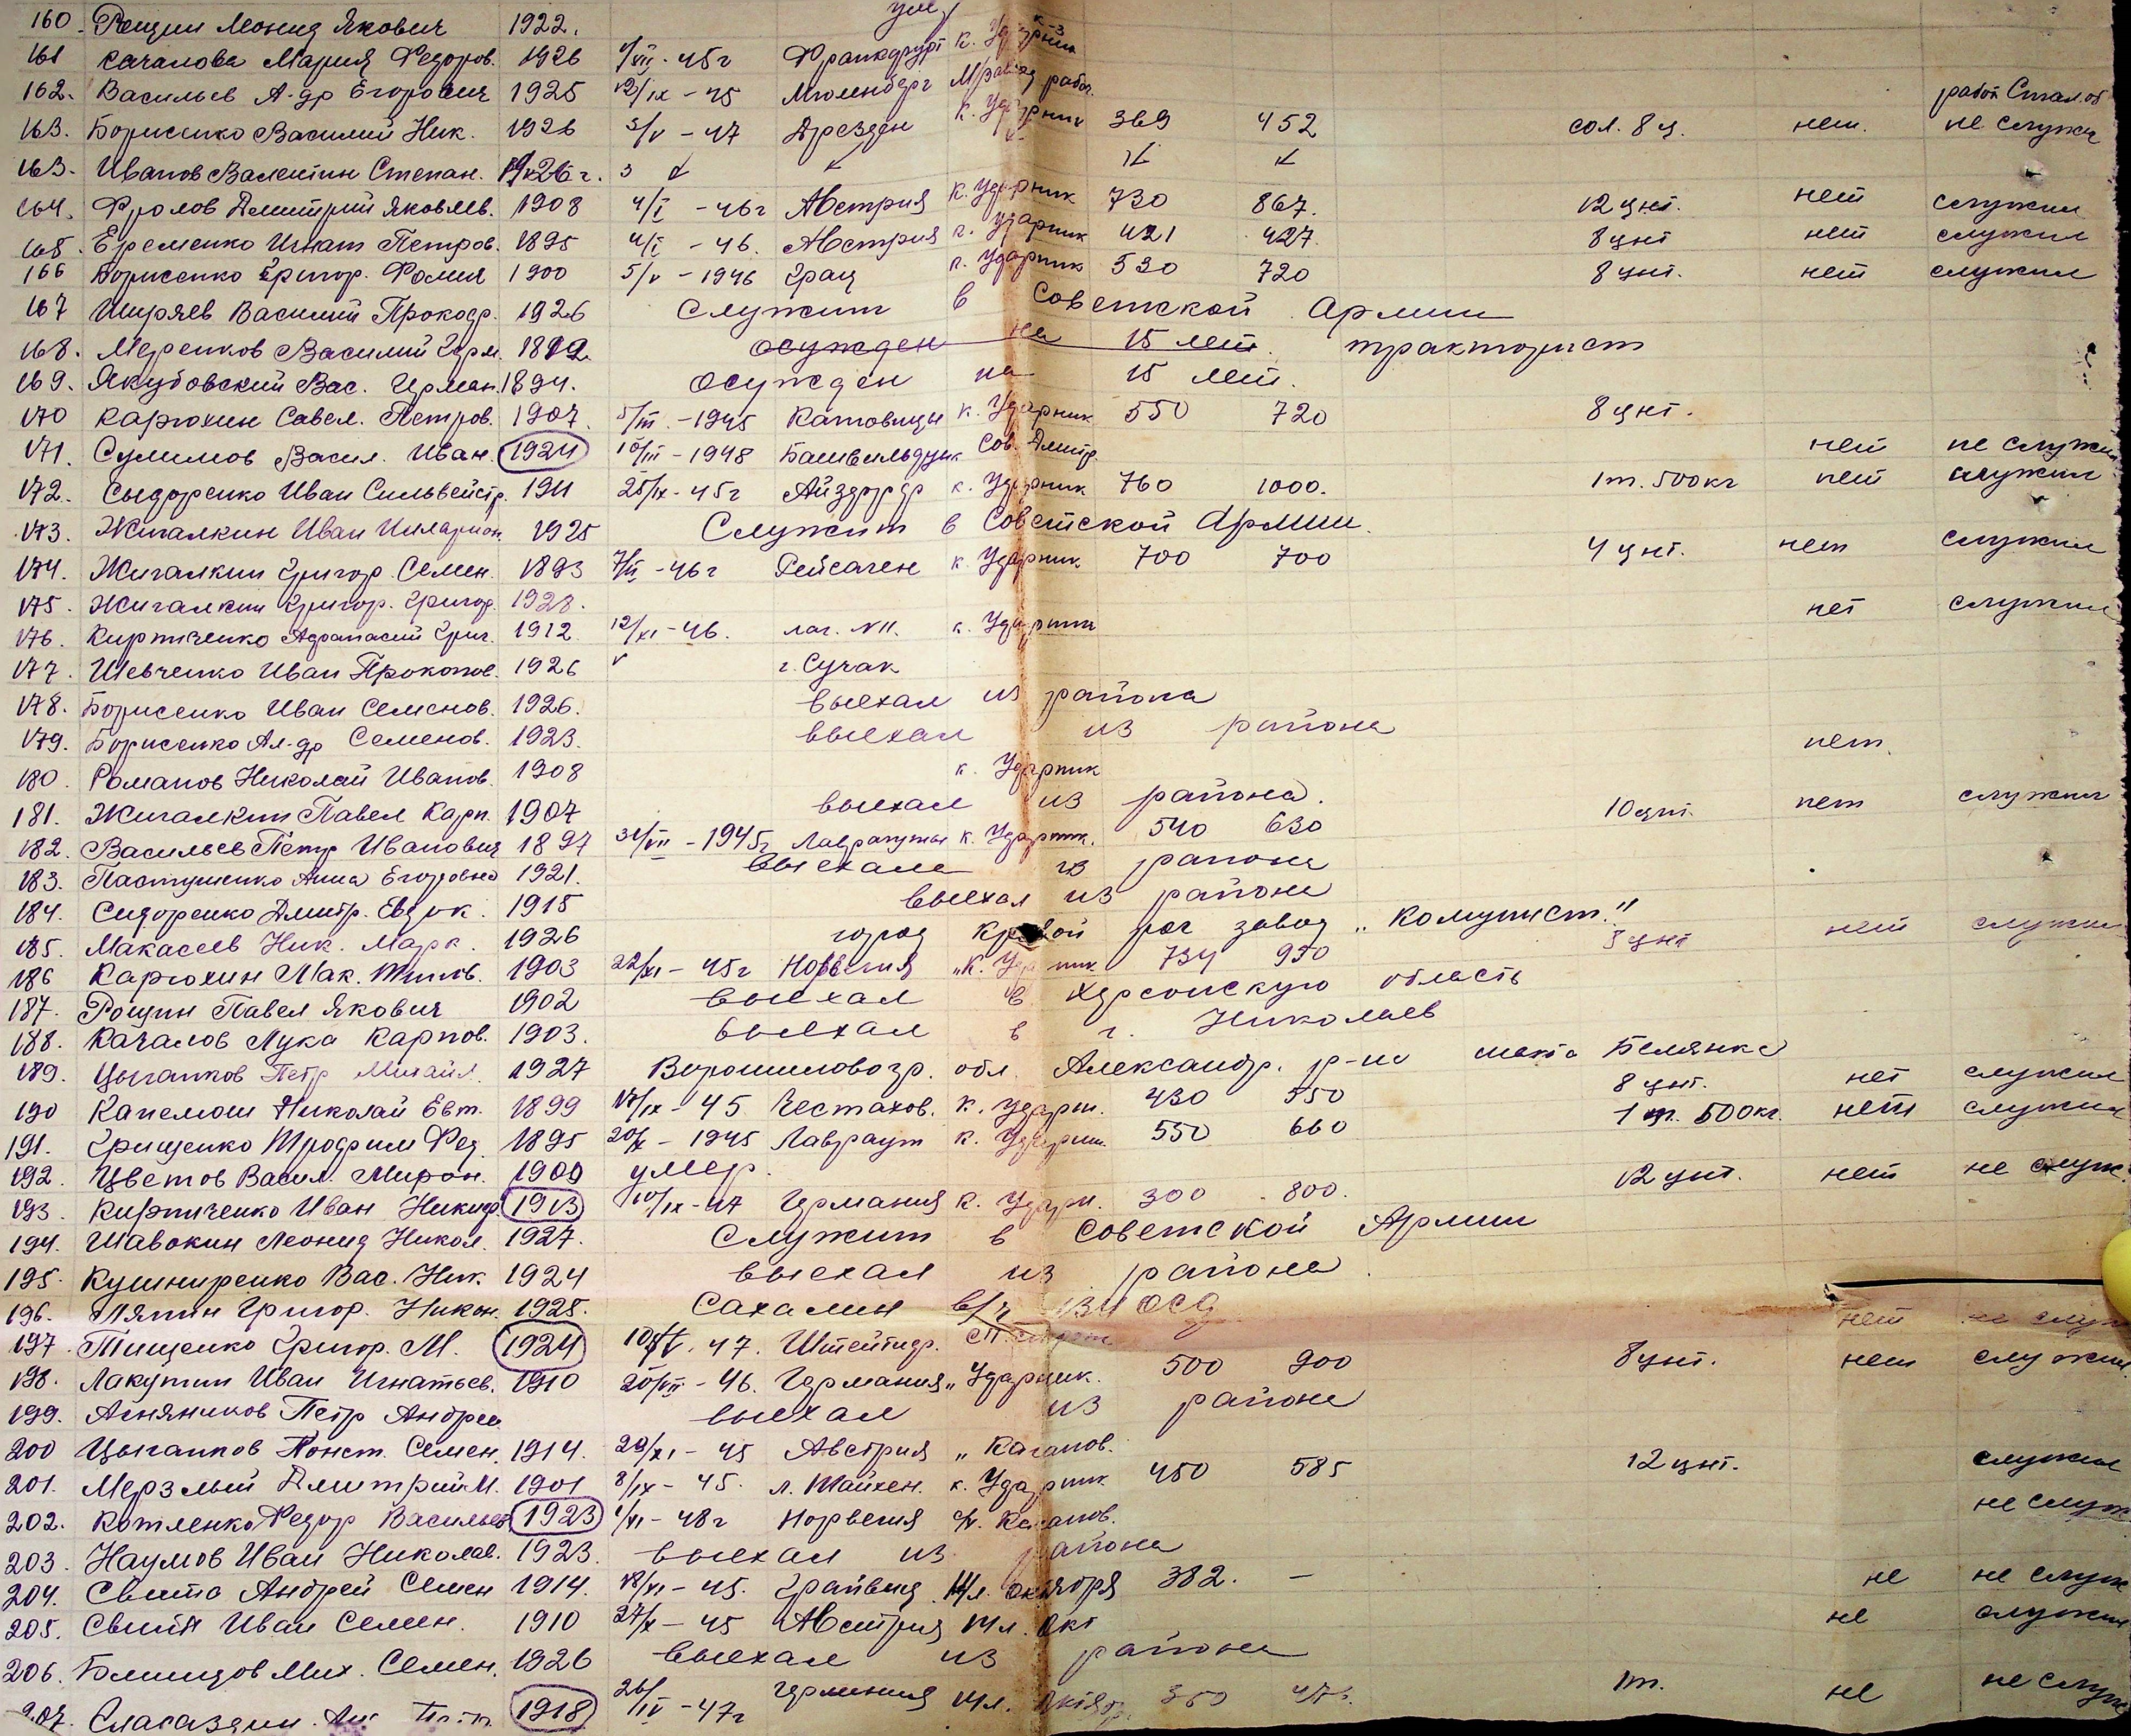 160. Рощин Леонид Якович 1922. ум.
161 Качалова Мария Федоров. 1926 /VII - 45г Франкфурт к. Ударник
162. Васильев А-др Егорович 1925 12/IX - 45 Мюленберг рабоч. работ
163. Борисенко Василий Ник. 1926 3/V - 47 Дрезден к. Ударник 369 452 сол. 8 ц. нет. не служил
163. Иванов Валентин Степан. 1926 г.
164. Фролов Дмитрий Яковлев. 1908 4/I - 46г Австрия к. Ударник 730 867. 12 цнт. нет служил
165. Еременко Игнат Петров. 1895 4/I - 46. Австрия к. Ударник 421 427. 8 цнт нет служил
166 Борисенко Григор. Фомич 1900 5/V - 1946 Грац к. Ударник 530 720 8 цнт. нет служил
167 Ширяев Василий Прокоф. 1926 Служит в Советской Армии
168. Меренков Василий Герм. осужден на 15 лет. тракторист
169. Якубовский Вас. Герман. 1894. Осужден на 15 лет.
170 Карюхин Савел. Петров. 1907. 5/III - 1945 Катовицы к. Ударник 550 720 8 цнт.
171. Сулимов Васил. Иван. 1924 10/III - 1948 Сов. Дмитр. нет не служил
172. Сыдоренко Иван Сильвейстр. 1911 25/IX - 45г Айздорф к. Ударник 760 1000. 1 т. 500 кг нет служил
173. Жигалкин Иван Иларион. 1925 Служит в Советской Армии.
174. Жигалкин Григор. Семен. 1893 7/II - 46г Рейсачен к. Ударник 700 700 4 цнт. нет служил
175. Жигалкин Григор. Григор. 1928.
176. Кирпиченко Афанасий Григ. 1912 12/XI - 46. лаг. к. Ударник нет служил
177. Шевченко Иван Прокопов. 1926 г. Сучак
178. Борисенко Иван Семенов. 1926. выехал из района
179. Борисенко Ал-др Семенов. 1923. выехал из района
180. Романов Николай Иванов. 1908 к. Ударник нет.
181. Жигалкин Павел Карп. 1907 выехал из района.
182. Васильев Петр Иванович 1897 31/VII - 1945г к. Ударник. 540 630 10 цнт. нет служил
183. Пастушенко Анна Егоровна 1921. выехала из района
184. Сидоренко Дмитр. Евдок. 1915 выехал из района
185. Макасеев Ник. Марк. 1926 город Кривой рог завод „Комунист"
186 Карюхин Мак. 1903 22/XI - 45г Норвегия „к. Ударник 734 950 цнт нет служил
187. Рощин Павел Якович 1902 выехал в Херсонскую область
188. Качалов Лука Карпов. 1903. выехал в г. Николаев
189. Цыганков Петр Михайл. 1927 Ворошиловогр. обл. Александр. р-на шахта Белянка
190 Капемош Николай Евт. 1899 17/IX - 45 Честахов. к. Ударн. 430 550 8 цнт. нет служил
191. Грищенко Трофим Фед. 1895 20/X - 1945 Лаврачут к. Ударник. 550 660 1 т. 500 кг. нет служил
192. Цветов Васил. Мирон. 1900 умер.
193. Кирпиченко Иван Никиф. 1913 10/IX - 47 Германия к. Ударн. 300 800. 12 цнт. нет не служ.
194. Шавокин Леонид Никол. 1927. Служит в Советской Армии
195. Кушниренко Вас. Ник. 1924 выехал из района.
196. Лятин Григор. Никон. 1925. Сахалин в/ч
197. Тищенко Григор. М. 1924 47. Штейтигр. нет не служ
198. Лакутин Иван Игнатьев. 1910 20/VII - 46. Германия „Ударник. 500 900 8 цнт. нет служил
199. Агняников Петр Андреев выехал из района
200 Цыганков Конст. Семен. 1914. 29/XI - 45 Австрия „ Каганов.
201. Мерзлый Дмитрий М. 1901 8/IX - 45. л. Шайхен. к. Ударник 450 585 12 цнт. служил
202. Котленко Федор Васильев 1923 1/VI - 48г Норвегия с/х. Каганов. не служ
203. Наумов Иван Николав. 1923. выехал из района
204. Свита Андрей Семен 1914. 18/VI - 45. Грайвиц Шл. Октября 382. — не не служ
205. Свита Иван Семен. 1910 27/X - 45 Австрия Шл. Окт не служил
206. Болищов Мих. Семен. 1926 выехал из района
207. 1918 26/IV - 47г Германия Шл. Октябр. 350 1 т. не не служ